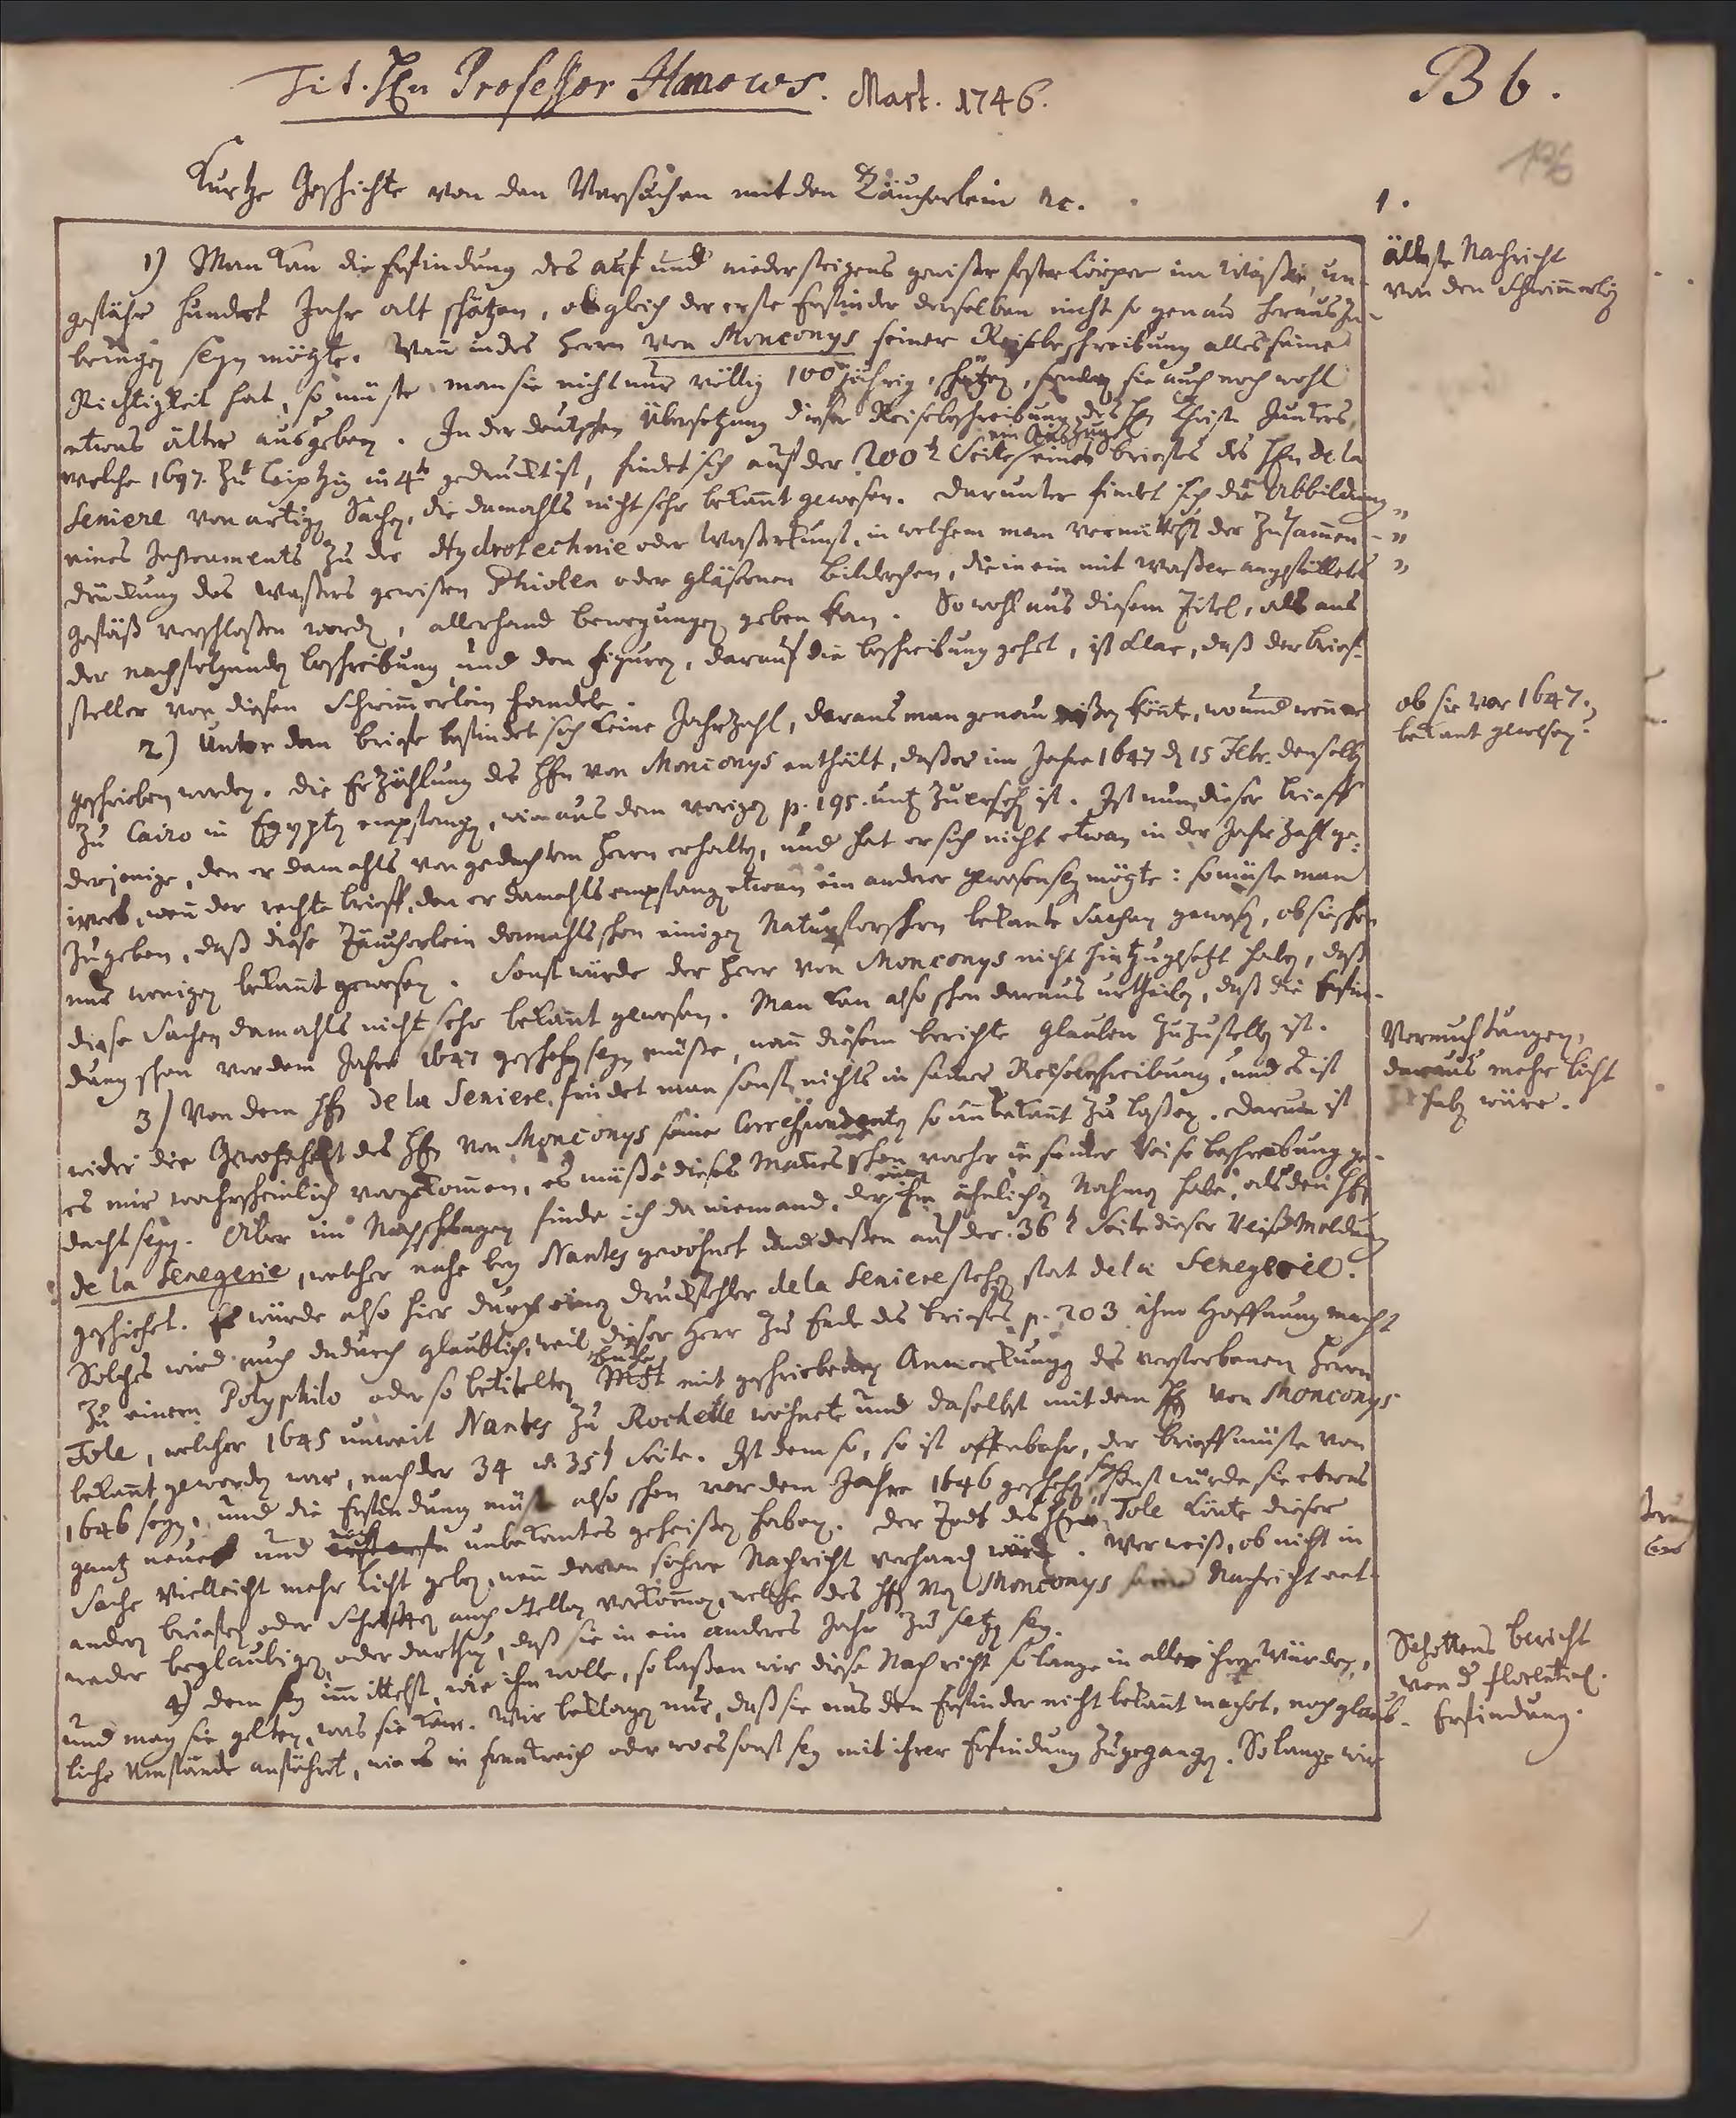 Tit. Hn Professor Hanows. Mart. 1746.
B 6.
176
Kurtze Geschichte von den Versuchen mit den Täucherlein etc.
1.
1) Man kan die Erfindung des auf und niedersteigens gewisser fester Körper im Wasser, un-
gefähr hundert Jahr alt schätzen, obgleich der erste Erfinder derselben nicht so genau herauszu-
bringen seyn mögte. Wan indes Herrn von Monconys seiner Reisebeschreibung alles seine
Richtigkeit hat, so müste man sie nicht nur völlig 100 jährig schätzen, sondern sie auch noch wohl
etwas älter ausgeben. In der deutschen Übersetzung dieser Reisebeschreibung des Hn Christ. Junkers,
welche 1697. zu Leipzig in 4to gedruckt ist, findet sich auf der 200t Seite ein Auszug eines briefes des Hn de la
Seniere von artigen Sachen, die damahls nicht sehr bekannt gewesen. Darunter findet sich die Abbildung „
eines Instruments zu der Hydrotechnie oder Wasserkunst, in welchem man vermittelst der Zusammen- „
drückung des Wassers gewissen Phiolen oder gläsernen Bilderchen, die in ein mit Wasser angefülletes „
Gefäß verschloßen worden, allerhand bewegungen geben kan. So wohl aus diesem Titel, als aus
der nachfolgenden beschreibung und den figuren, darauf die beschreibung gehet, ist klar, daß der brief-
steller von diesen Schwimmerlein handele.
2) Unter dem briefe befindet sich keine Jahrzahl, daraus man genau wißen könte, wo und wenn er
geschrieben worden. Die Erzählung des Hn von Monconys enthält, daß er im Jahre 1647 d 15 Febr. denselben
zu Cairo in Egypten empfangen, wie aus dem vorigen p. 195. unten zu ersehen ist. Ist nun dieser brieff
derjenige, den er damahls von gedachtem Herrn erhalten, und hat er sich nicht etwan in der Jahrzahl ge-
irret, wenn der rechte brieff, den er damahls empfangen etwan ein anderer gewesen seyn mögte: so müste man
zugeben, daß diese Täucherlein damahls schon einigen Naturforschern bekante Sachen gewesen, ob sie schon
nur wenigen bekannt gewesen. Sonst würde der Herr von Monconys nicht hinzugesetzt haben, daß
diese Sachen damahls nicht sehr bekannt gewesen. Man kan also schon daraus urtheilen, daß die Erfin-
dung schon vor dem Jahre 1647 geschehen seyn müste, wenn diesem berichte Glauben zuzustellen ist.
3) Von dem Hn de la Seniere findet man sonst nichts in seiner Reisebeschreibung, und es ist
wider die Gewohnheit des Hn von Monconys seine Correspondenten so unbekannt zu laßen. Darum ist
es mir wahrscheinlich vorgekommen, es müße dieses Mannes schon vorher in seiner Reisebeschreibung ge-
dacht seyn. Aber im Nachschlagen finde ich da niemand, der einen ihm ähnlichen Nahmen habe, als den Hn
de la Senegerie, welcher nahe bey Nantes gewohnet und deßen auf der 36t Seite dieser Reise Meldung
geschiehet. Es würde also hier durch einen Druckfehler de la Seniere stehen stat de la Senegerie.
Solches wird auch dadurch glaublich, weil dieser Herr zu Ende des briefes p. 203 ihm Hoffnung macht
zu einem Polyphilo oder so betitelten Buche mit geschriebenen Anmerkungen des verstorbenen Herrn
Tole, welcher 1645 unweit Nantes zu Rochelle wohnete und daselbst mit dem Hn von Monconys
bekannt geworden war, nach der 34 u. 35t Seite. Ist dem so, so ist offenbahr, der brieff müste von
1646 seyn, und die Erfindung müste also schon vor dem Jahre 1646 geschehen seyn, sonst würde sie etwas
gantz neues und unbekantes geheißen haben. Der Todt des Hn Tole könte dieser
Sache vielleicht mehr Licht geben, wenn davon sichere Nachricht vorhanden wäre. Wer weiß, ob nicht in
andern briefen oder Schriften auch Stellen vorkommen, welche des Hn von Monconys seine Nachricht ent-
weder beglaubigen oder darthun, daß sie in ein anderes Jahr zu setzen sey.
4) Dem sey immittelst, wie ihm wolle, so laßen wir diese Nachricht so lange in allen ihren Würden,
und mag sie gelten, was sie kan. Wir beklagen nur, daß sie uns den Erfinder nicht bekannt machet, noch glaub-
liche Umstände anführet, wie es in Franckreich oder wo es sonst sey mit ihrer Erfindung zugegangen. So lange wir
älteste Nachricht
von den Schwimmerlein
ob sie vor 1647.
bekant gewesen?
Vermuthungen,
daraus mehr Licht
zu haben wäre.
Schottens bericht
von d florentin.
Erfindung.